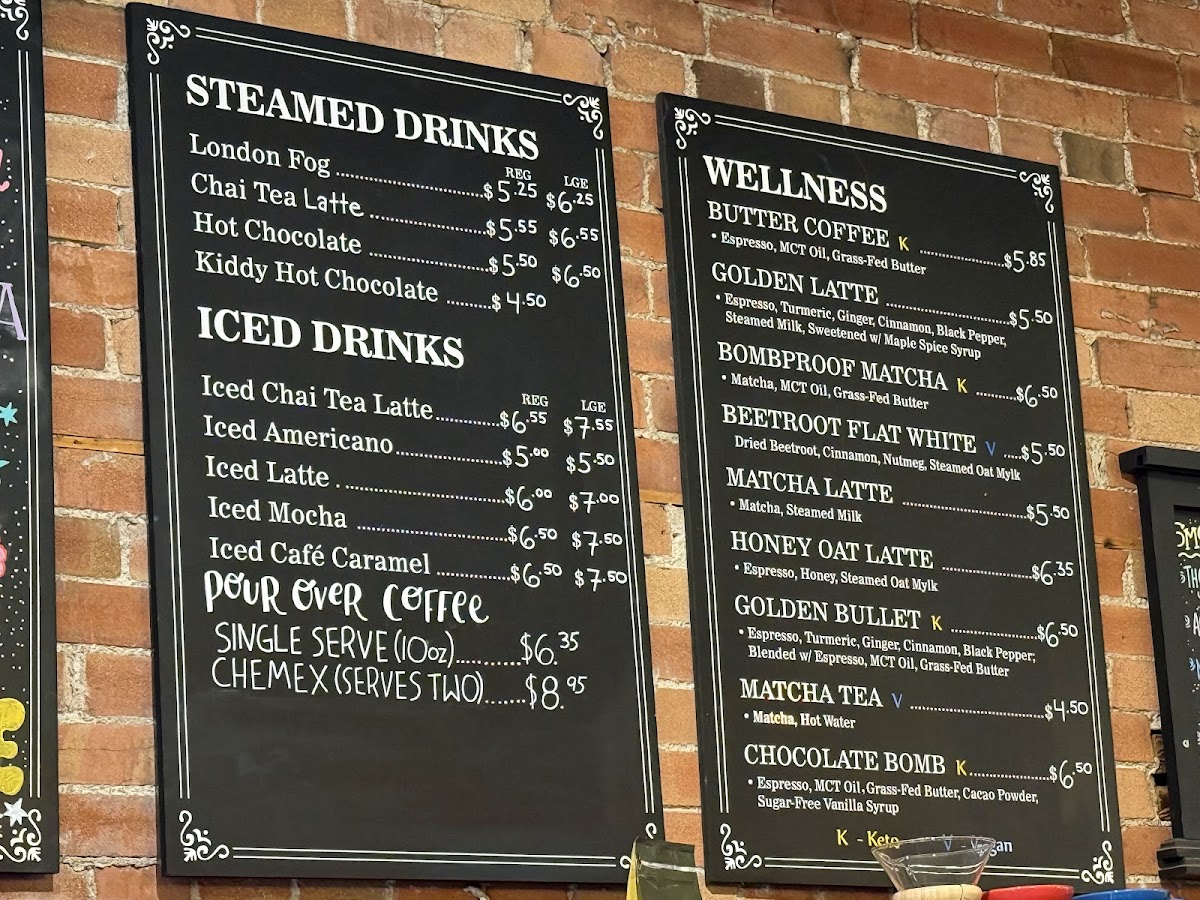 STEAMED DRINKS
REG LGE
London Fog ........ $5.25 $6.25
Chai Tea Latte ........ $5.55 $6.55
Hot Chocolate ........ $5.50 $6.50
Kiddy Hot Chocolate ........ $4.50
ICED DRINKS
REG LGE
Iced Chai Tea Latte ........ $6.55 $7.55
Iced Americano ........ $5.00 $5.50
Iced Latte ........ $6.00 $7.00
Iced Mocha ........ $6.50 $7.50
Iced Café Caramel ........ $6.50 $7.50
POUR OVER COFFEE
SINGLE SERVE (10oz) ........ $6.35
CHEMEX (SERVES TWO) ...... $8.95
WELLNESS
BUTTER COFFEE K ........ $5.85
• Espresso, MCT Oil, Grass-Fed Butter
GOLDEN LATTE ........ $5.50
• Espresso, Turmeric, Ginger, Cinnamon, Black Pepper,
Steamed Milk, Sweetened w/ Maple Spice Syrup
BOMBPROOF MATCHA K ........ $6.50
• Matcha, MCT Oil, Grass-Fed Butter
BEETROOT FLAT WHITE V .... $5.50
Dried Beetroot, Cinnamon, Nutmeg, Steamed Oat Mylk
MATCHA LATTE ........ $5.50
• Matcha, Steamed Milk
HONEY OAT LATTE ........ $6.35
• Espresso, Honey, Steamed Oat Mylk
GOLDEN BULLET K ........ $6.50
• Espresso, Turmeric, Ginger, Cinnamon, Black Pepper;
Blended w/ Espresso, MCT Oil, Grass-Fed Butter
MATCHA TEA V ........ $4.50
• Matcha, Hot Water
CHOCOLATE BOMB K ........ $6.50
• Espresso, MCT Oil, Grass-Fed Butter, Cacao Powder,
Sugar-Free Vanilla Syrup
K - Keto V